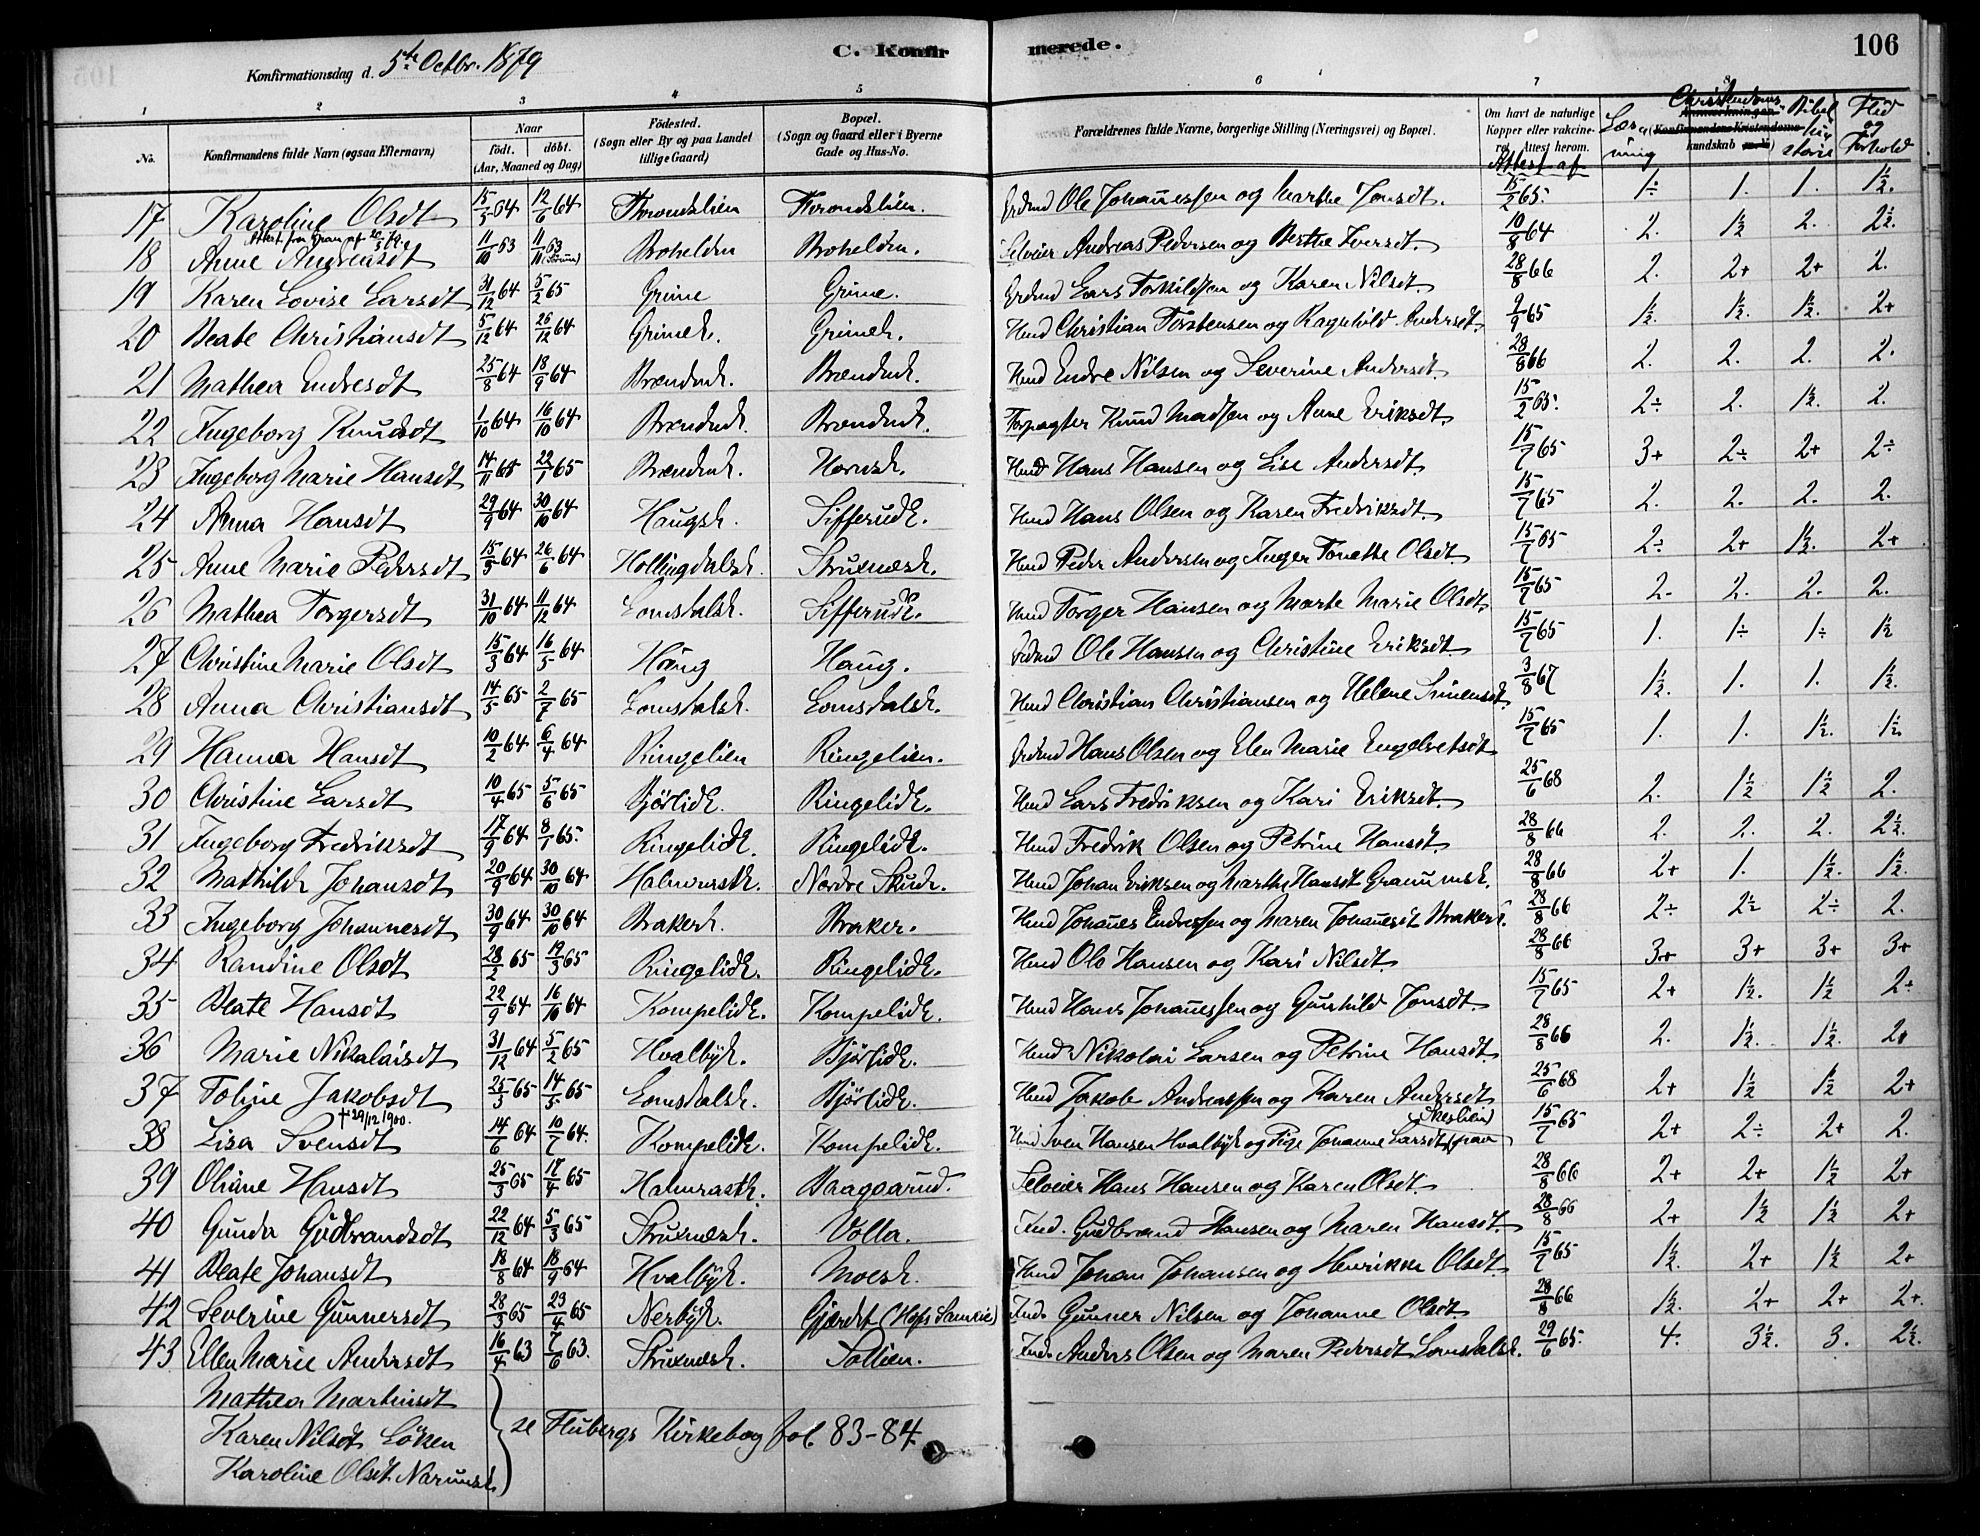 Konfirmationsdag d. 5te Octbr. 1879 C. Konfirmerede. 106
1 2 3 4 5 6 7 8
No. Konfirmandens fulde Navn (ogsaa Efternavn) Naar Født. døbt. (Aar, Maaned og Dag) Fødested. (Sogn eller By og paa Landet tillige Gaard) Bopæl. (Sogn og Gaard eller i Byerne Gade og Hus-No. Forældrenes fulde Navne, borgerlige Stilling (Næringsvei) og Bopæl. Om havt de naturlige Kopper eller vaccineret. Attest herom. Attest af Læsning Christendomskundskab Bibelhistorie Flid og Forhold
17 Karoline Olsdt 15/5 64 12/6 64 Throndslien Throndslien. Grdmd Ole Johannessen og Marthe Jonsdt. 15/2 65. 1÷ 1. 1. 1½.
Attest fra Gran af
18 Anne Andreasdt 11/10 63 11/11 63 Brohelden Brohelden. Selveier Andreas Pedersen og Berthe Iversdt. 10/8 64 2. 1½ 2. 2½.
19 Karen Lovise Larsdt 31/12 64 5/2 65 Grime Grime. Grdmd Lars Torkildsen og Karen Nilsdt. 28/8 66 2. 2+ 2+ 2.
20 Beate Christiansdt 5/12 64 26/12 64 Grimek. Grimek. Hmd Christian Torstensen og Ragnhild Andersdt. 9/9 65 1½. 1½. 1½. 2+
21 Mathea Endresdt 25/8 64 18/9 64 Brændek. Brændek. Hmd Endre Nilsen og Severine Andersdt. 28/8 66 2. 2. 2. 2.
22 Ingeborg Knudsdt 1/10 64 16/10 64 Brændek. Brændek. Forpagter Knud Madsen og Anne Eriksdt. 15/2 65. 2÷ 2. 1½. 2.
23 Ingeborg Marie Hansdt 14/11 65 22/1 65 Brændek. Hornsk. Hmd Hans Hansen og Lise Andersdt. 15/7 65 3+ 2÷ 2+ 2÷
24 Anna Hansdt 29/9 64 30/10 64 Haugsk. Sifferudk. Hmd Hans Olsen og Karen Fredriksdt. 15/7 65 2. 2. 2. 2.
25 Anne Marie Pedersdt 15/5 64 26/6 64 Hollingdalsk. Struxnæsk. Hmd Peder Andersen og Inger Tonette Olsdt. 15/7 65 2÷ 2+ 1½. 2+
26 Mathea Torgersdt 31/10 64 11/12 64 Lomsdalsk. Sifferudk. Hmd Torger Hansen og Marte Marie Olsdt. 15/7 65 2. 2. 2. 2.
27 Christine Marie Olsdt 15/3 64 16/5 64 Haug Haug. Grdmd Ole Hansen og Christine Eriksdt. 15/7 65 1. 1÷ 1÷ 1½
28 Anna Christiansdt 14/5 65 2/7 65 Lomsdalsk. Lomsdalsk. Hmd Christian Christiansen og Helene Simensdt. 3/8 67 1½. 1. 1. 1½.
29 Hanna Hansdt 10/2 64 6/4 64 Ringelien Ringelien. Grdmd Hans Olsen og Elen Marie Engebretsdt 15/7 65 1. 1. 1½. 1½.
30 Christine Larsdt 10/4 65 5/6 65 Bjørlidk. Ringelidk. Hmd Lars Fredriksen og Kari Eriksdt. 25/6 68 2. 1½ 1½ 2.
31 Ingeborg Fredriksdt 17/9 64 8/1 65. Ringelidk. Ringelidk. Hmd Fredrik Olsen og Petrine Hansdt. 28/8 66 2. 2. 2. 2½.
32 Mathilde Johansdt 20/9 64 30/10 64 Halmrastk. Nordre Skudk. Hmd Johan Eriksen og Marthe Hansdt 28/8 66 2+ 1. 1½. 1½.
33 Ingeborg Johannesdt 30/9 64 30/10 64 Brakerk. Braker. Hmd Johanes Endressen og Maren Johanesdt Brakerk. 28/8 66 2÷ 2½ 2÷ 2.
34 Randine Olsdt 28/2 65 19/3 65 Ringelidk. Ringelidk. Hmd Ole Hansen og Kari Nilsdt. 28/8 66 3+ 3+ 3+ 3+
35 Beate Hansdt 22/9 64 16/10 64 Kompelidk. Kompelidk. Hmd Hans Johanessen og Gunhild Jonsdt. 15/7 65 2+ 1½. 1½ 2÷
36 Marie Nikolaisdt 31/12 64 5/2 65 Hvalbyk. Bjørlidk. Hmd Nikolai Larsen og Petrine Hansdt. 28/8 66 2. 1½. 1½. 2+
37 Toline Jakobsdt 25/3 65 14/5 65 Lomsdalsk. Bjørlidk. Hmd Jakob Andreassen og Karen Andersdt 25/6 68 2+ 1½ 1½ 2+
† 29/12 1900.
38 Lisa Svensdt 14/6 64 10/7 64. Kompelidk. Kompelidk. Hmd Sven Hansen Hvalbyk og Pige Johanne Larsdt (paa Skeslien) 15/7 65 2+ 2÷ 2+ 2.
39 Oliane Hansdt 25/3 65 17/4 65 Halmrastk. Baagaarud. Selveier Hans Hansen og Karen Olsdt. 28/8 66 2+ 2+ 1½ 2+
40 Gunda Gudbrandsdt 22/12 64 5/3 65 Struxnæsk. Volla. Ind. Gudbrand Hansen og Maren Hansdt. 28/8 66 2+ 1½ 1½ 2+
41 Beate Johansdt 18/8 64 18/9 64 Hvalbyk. Moesk. Hmd Johan Johansen og Henrikke Olsdt. 15/7 65 1½. 2+ 1½ 2+
42 Severine Gunnersdt 28/3 65 23/4 65 Nerbyk. Gjærdet (Hofs Sameie) Ind. Gunner Nilsen og Johanne Olsdt. 28/8 66 1½. 2+ 2+ 2+.
43 Ellen Marie Andersdt 16/4 63 7/6 63. Struxnæsk. Sollien. Ind. Anders Olsen og Maren Pedersdt Lomsdalsk. 29/6 65. 4. 3½. 3. 2½.
Mathea Martinsdt
Karen Nilsdt Løken se Flubergs Kirkebog fol 83-84.
Karoline Olsdt Narumsk.